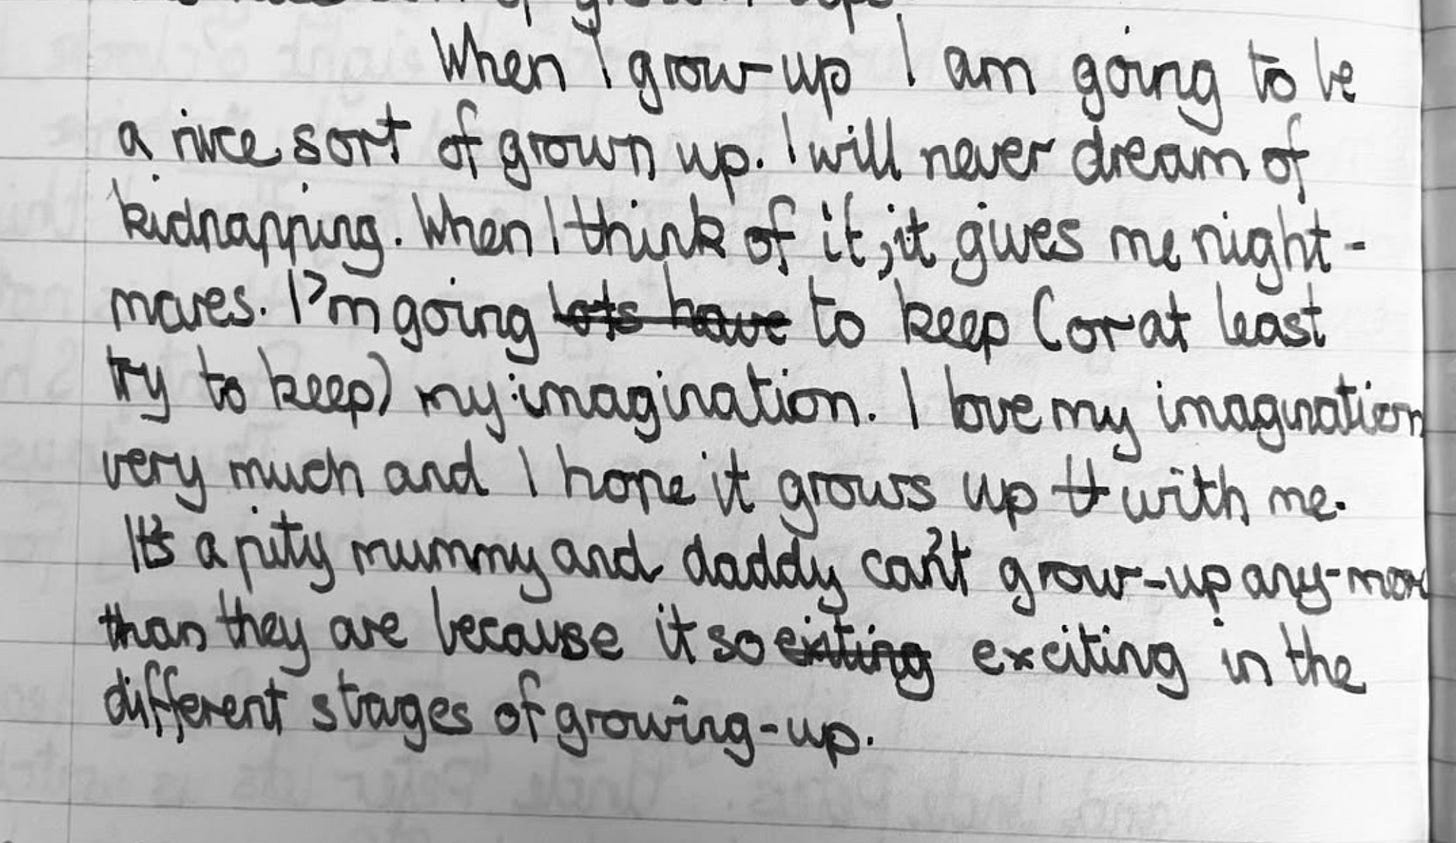 When I grow-up I am going to be
a nice sort of grown up. I will never dream of
kidnapping. When I think of it, it gives me night-
mares. I'm going lots have to keep (or at least
try to keep) my imagination. I love my imagination
very much and I hope it grows up tt with me.
It's a pity mummy and daddy can't grow-up any-more
than they are because it so exiting exciting in the
different stages of growing-up.